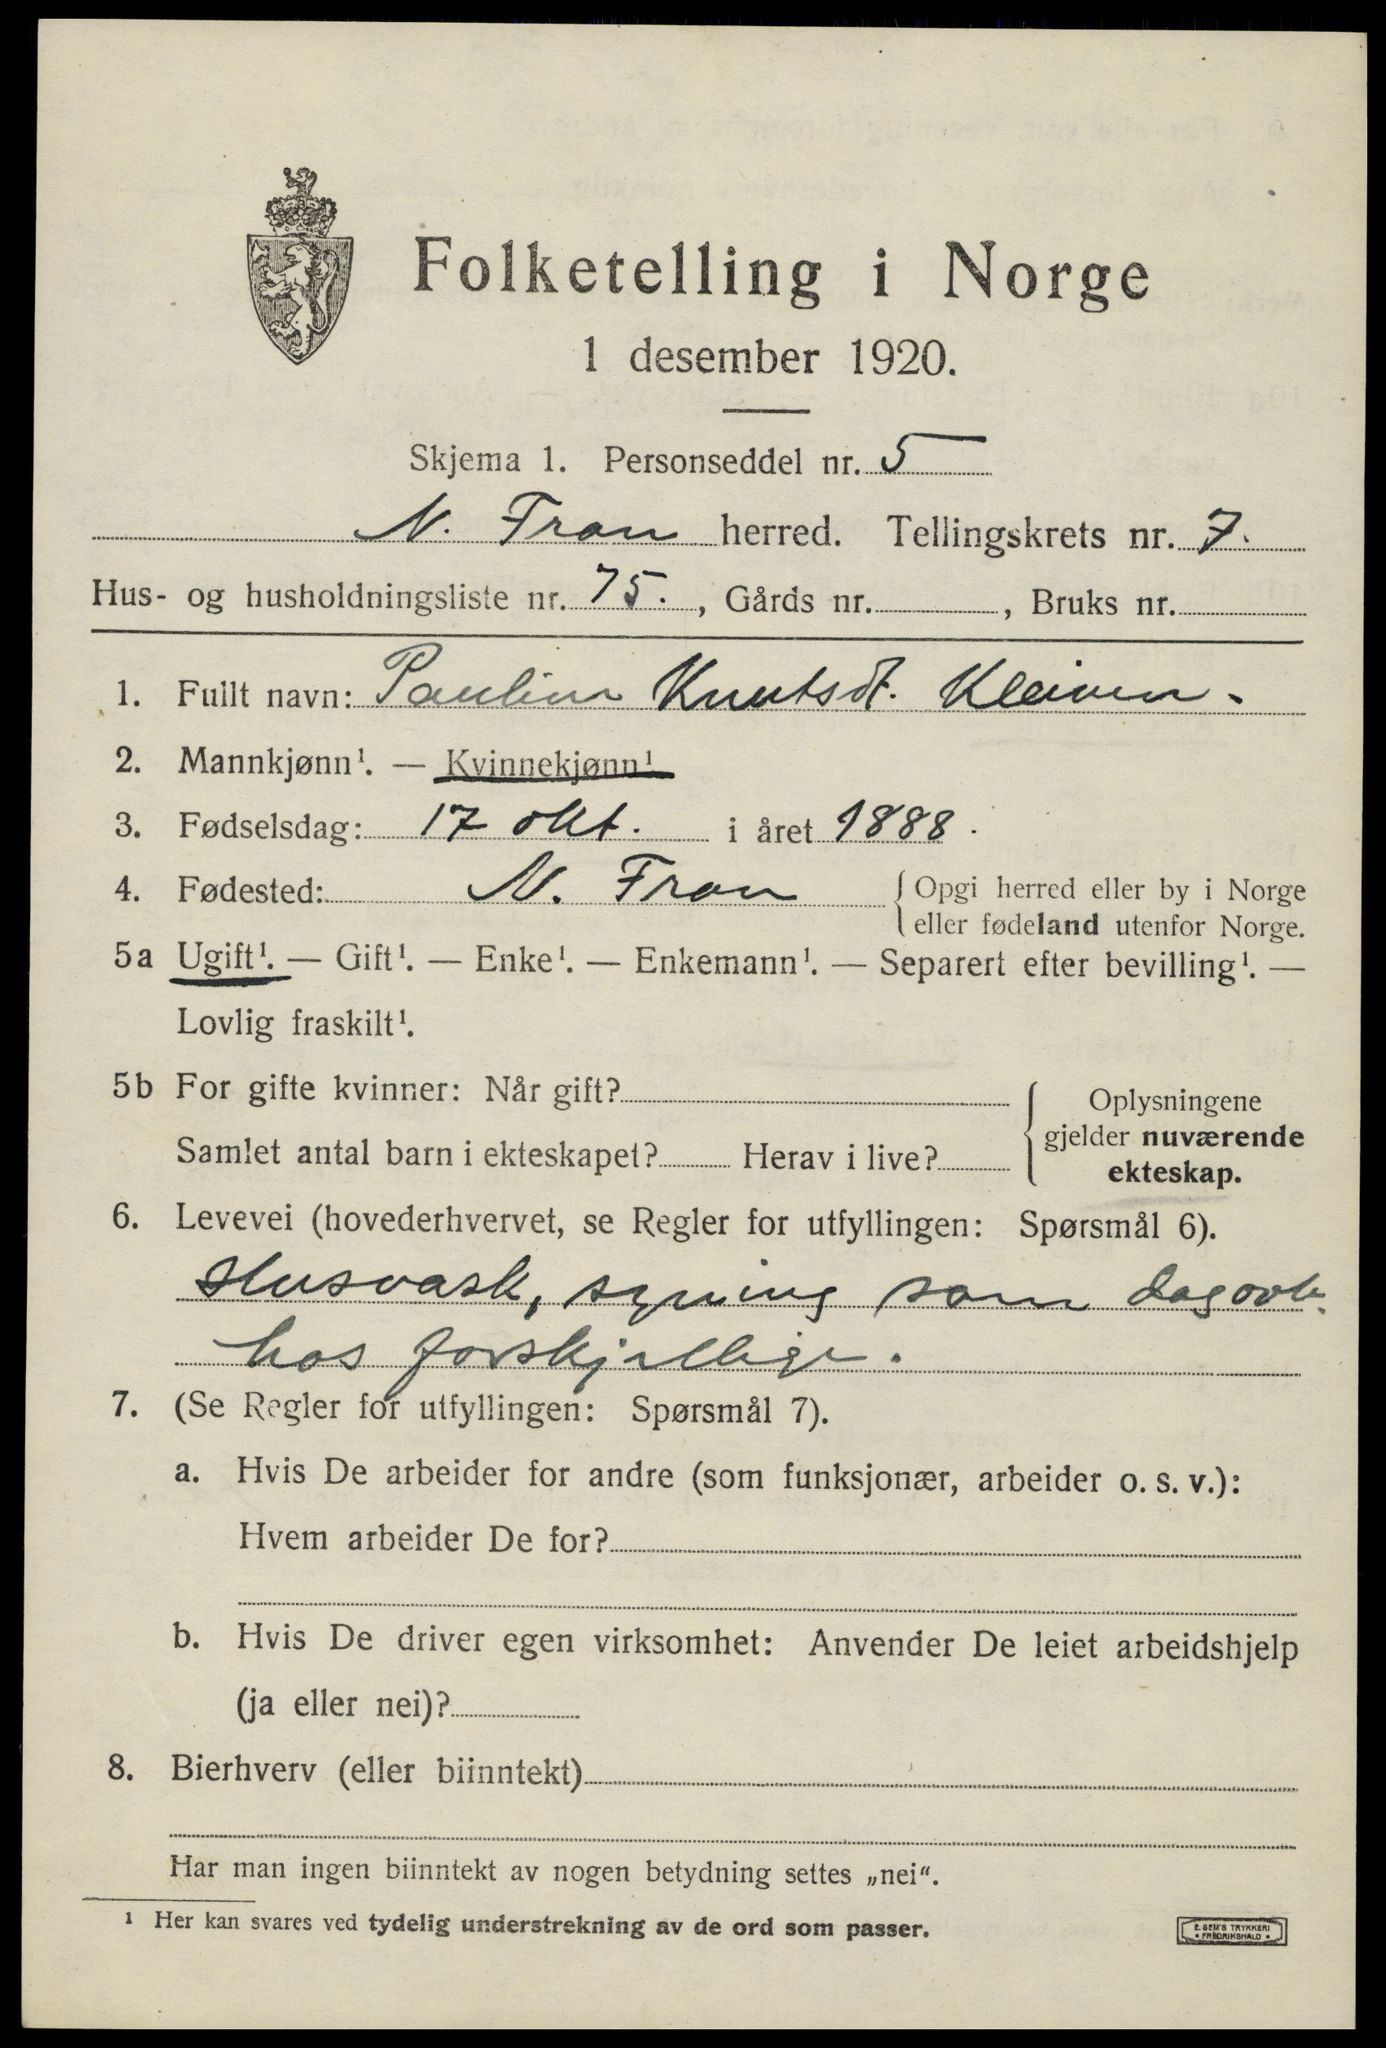 Folketelling i Norge
1 desember 1920.
Skjema 1. Personseddel nr. 5
N. Fron herred. Tellingskrets nr. 7.
Hus- og husholdningsliste nr. 75. , Gårds nr. , Bruks nr.
1. Fullt navn: Pauline Knutsdt. Kleiven.
2. Mannkjønn¹. — Kvinnekjønn¹
3. Fødselsdag: 17 okt. i året 1888.
4. Fødested: N. Fron { Opgi herred eller by i Norge
eller fødeland utenfor Norge.
5a Ugift¹. — Gift¹. — Enke¹. — Enkemann¹. — Separert efter bevilling¹. —
Lovlig fraskilt¹.
5b For gifte kvinner: Når gift? { Oplysningene
gjelder nuværende
Samlet antal barn i ekteskapet? Herav i live?
ekteskap.
6. Levevei (hovederhvervet, se Regler for utfyllingen: Spørsmål 6).
Husvask, syning som dagarb.
hos forskjellige.
7. (Se Regler for utfyllingen: Spørsmål 7).
a. Hvis De arbeider for andre (som funksjonær, arbeider o. s. v.):
Hvem arbeider De for?
b. Hvis De driver egen virksomhet: Anvender De leiet arbeidshjelp
(ja eller nei)?
8. Bierhverv (eller biinntekt)
Har man ingen biinntekt av nogen betydning settes „nei“.
¹ Her kan svares ved tydelig understrekning av de ord som passer.
E. SEM'S TRYKKERI
• FREDRIKSHALD •